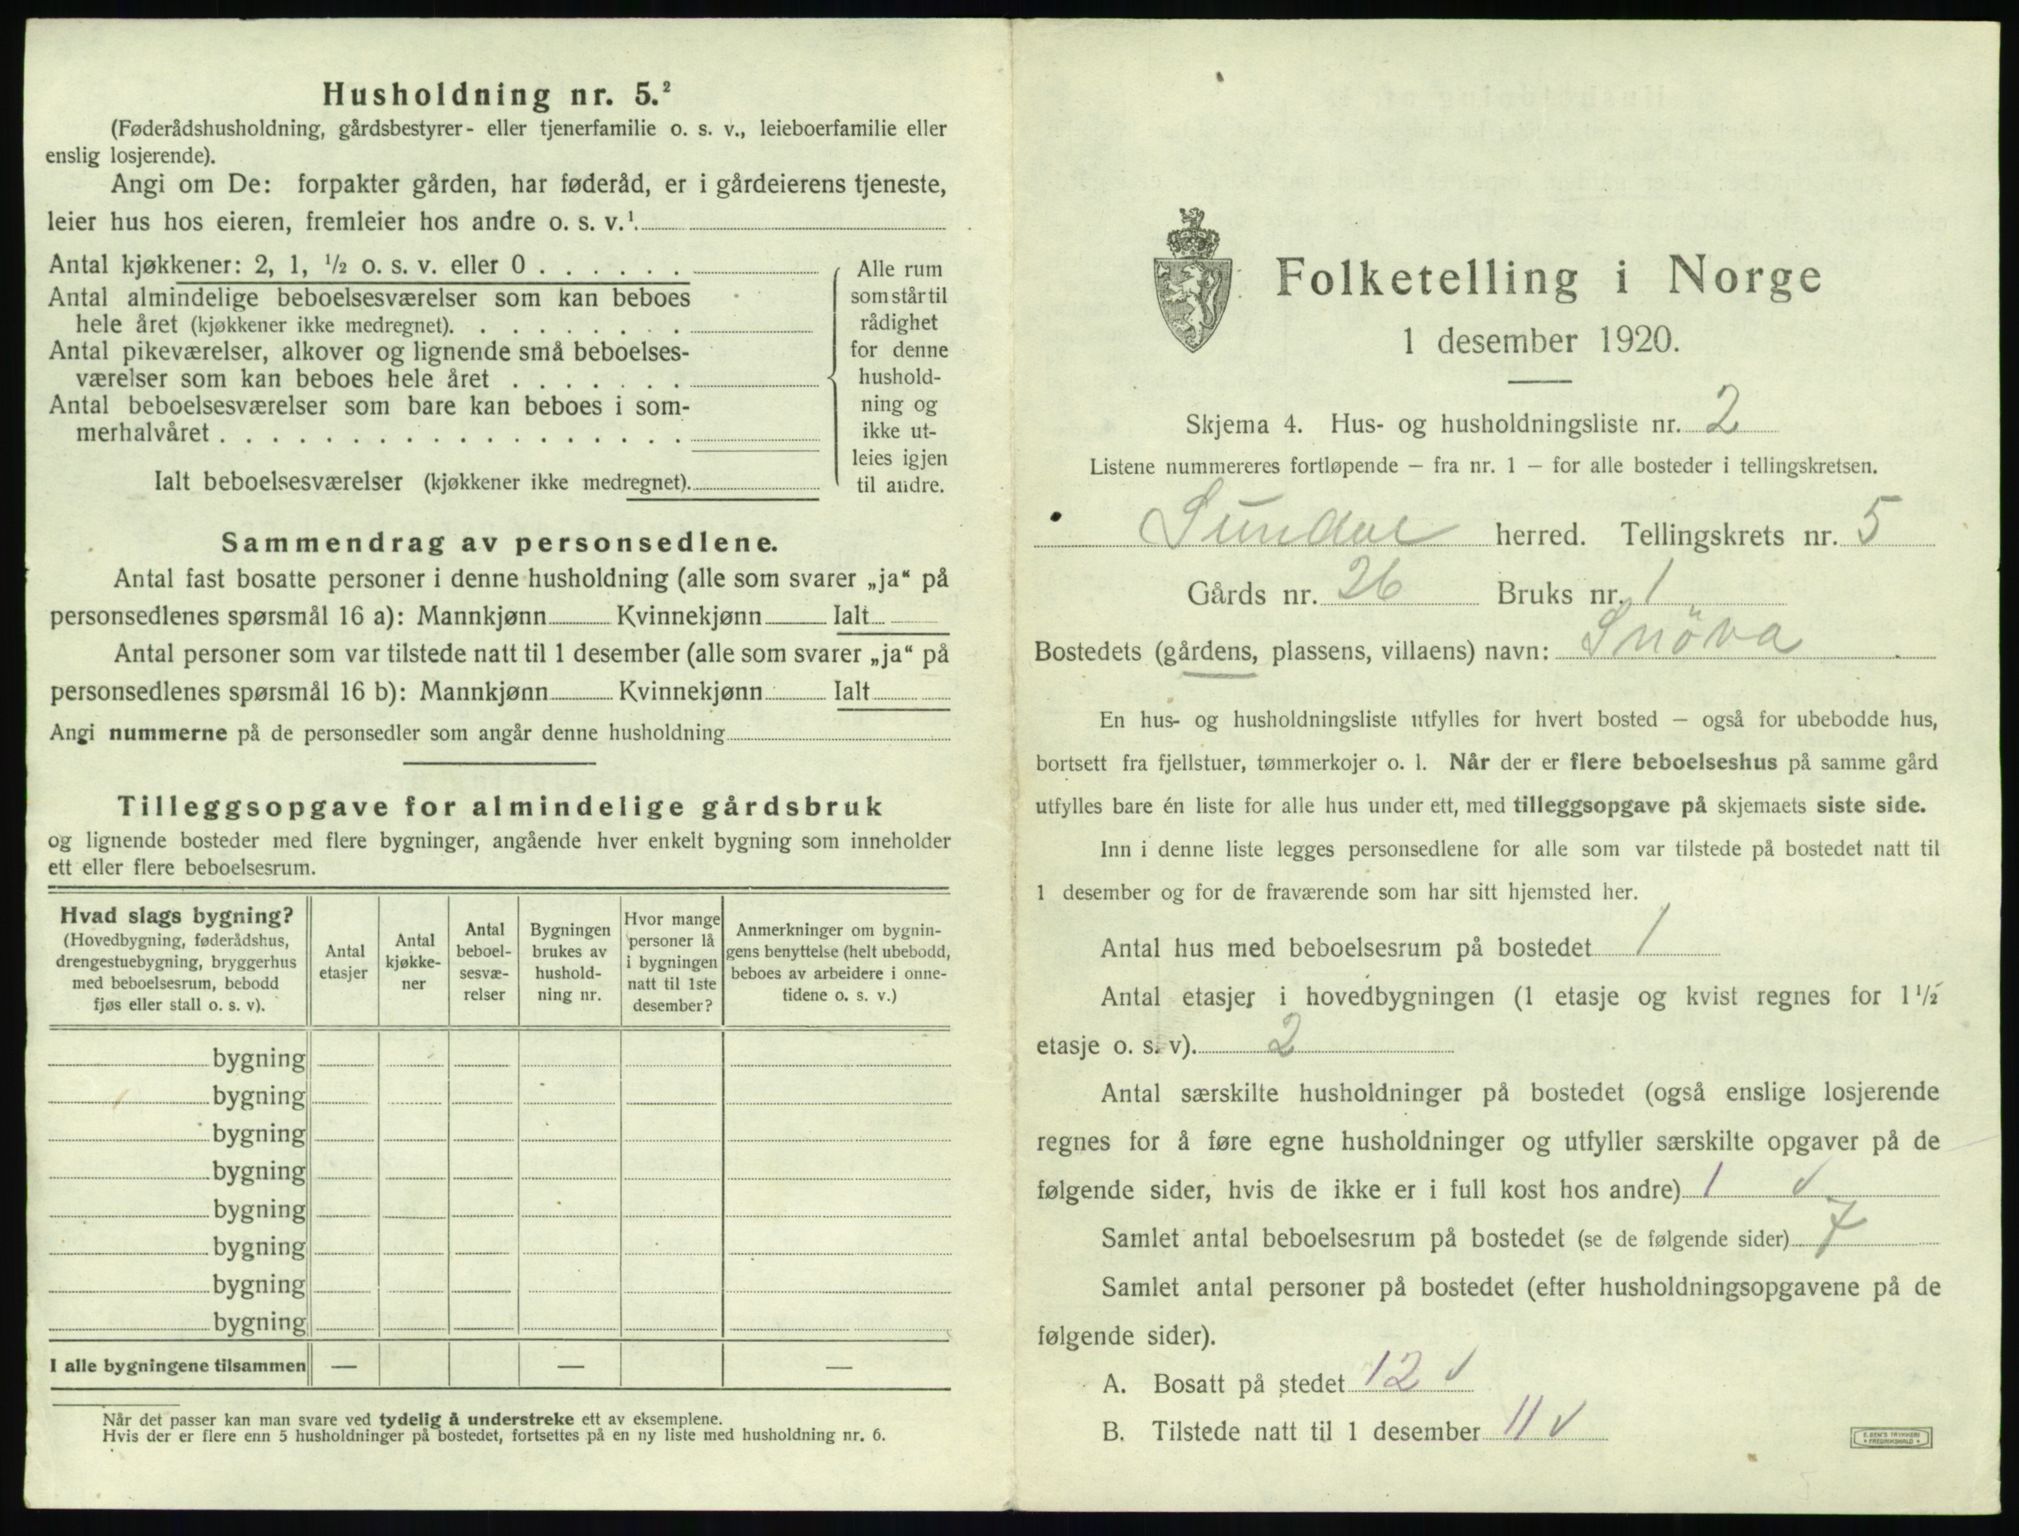 Husholdning nr. 5.²
(Føderådshusholdning, gårdsbestyrer- eller tjenerfamilie o. s. v., leieboerfamilie eller
enslig losjerende).
Angi om De: forpakter gården, har føderåd, er i gårdeierens tjeneste,
leier hus hos eieren, fremleier hos andre o. s. v.¹
Antal kjøkkener: 2, 1, ½ o. s. v. eller 0 . . . . . .
Antal almindelige beboelsesværelser som kan beboes
hele året (kjøkkener ikke medregnet). . . . . . . . .
Antal pikeværelser, alkover og lignende små beboelses-
værelser som kan beboes hele året . . . . . . .
Antal beboelsesværelser som bare kan beboes i som-
merhalvåret . . . . . . . . . . . . . . . . . .
Ialt beboelsesværelser (kjøkkener ikke medregnet).
Alle rum
som står til
rådighet
for denne
hushold-
ning og
ikke ut-
leies igjen
til andre.
Sammendrag av personsedlene.
Antal fast bosatte personer i denne husholdning (alle som svarer „ja“ på
personsedlenes spørsmål 16 a): Mannkjønn Kvinnekjønn Ialt
Antal personer som var tilstede natt til 1 desember (alle som svarer „ja“ på
personsedlenes spørsmål 16 b): Mannkjønn Kvinnekjønn Ialt
Angi nummerne på de personsedler som angår denne husholdning
Tilleggsopgave for almindelige gårdsbruk
og lignende bosteder med flere bygninger, angående hver enkelt bygning som inneholder
ett eller flere beboelsesrum.
Hvad slags bygning?
(Hovedbygning, føderådshus,
drengestuebygning, bryggerhus
med beboelsesrum, bebodd
fjøs eller stall o. s. v).
Antal
etasjer
Antal
kjøkke-
ner
Antal
beboel-
sesvæ-
relser
Bygningen
brukes av
hushold-
ning nr.
Hvor mange
personer lå
i bygningen
natt til 1ste
desember?
Anmerkninger om bygnin-
gens benyttelse (helt ubebodd,
beboes av arbeidere i onne-
tidene o. s. v.)
bygning
bygning
bygning
bygning
bygning
bygning
bygning
bygning
I alle bygningene tilsammen — — —
Når det passer kan man svare ved tydelig å understreke ett av eksemplene.
Hvis der er flere enn 5 husholdninger på bostedet, fortsettes på en ny liste med husholdning nr. 6.
Folketelling i Norge
1 desember 1920.
Skjema 4. Hus- og husholdningsliste nr. 2
Listene nummereres fortløpende – fra nr. 1 – for alle bosteder i tellingskretsen.
Sundal herred. Tellingskrets nr. 5
Gårds nr. 26 Bruks nr. 1
Bostedets (gårdens, plassens, villaens) navn: Snöva
En hus- og husholdningsliste utfylles for hvert bosted – også for ubebodde hus,
bortsett fra fjellstuer, tømmerkojer o. l. Når der er flere beboelseshus på samme gård
utfylles bare én liste for alle hus under ett, med tilleggsopgave på skjemaets siste side.
Inn i denne liste legges personsedlene for alle som var tilstede på bostedet natt til
1 desember og for de fraværende som har sitt hjemsted her.
Antal hus med beboelsesrum på bostedet 1
Antal etasjer i hovedbygningen (1 etasje og kvist regnes for 1½
etasje o. s. v). 2
Antal særskilte husholdninger på bostedet (også enslige losjerende
regnes for å føre egne husholdninger og utfyller særskilte opgaver på de
følgende sider, hvis de ikke er i full kost hos andre) 1 v
Samlet antal beboelsesrum på bostedet (se de følgende sider) 7
Samlet antal personer på bostedet (efter husholdningsopgavene på de
følgende sider).
A. Bosatt på stedet 12 v
B. Tilstede natt til 1 desember 11 v